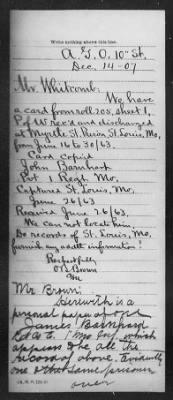 Write nothing above this line.
A. G. O. 10th St.
Dec. 14-07
Mr. Whitcomb:
We have
a card from roll 205, sheet 1,
P of W rec'd and discharged
at Myrtle St. Prison St. Louis, Mo,
from June 16 to 30/63.
Card copied
John Barnhart
Pvt 1 Regt. Mo,
Captured St. Louis, Mo,
June 26/63
Received June 26/63,
We can not locate him
Do records of St. Louis, Mo,
furnish any addtl information?
Respectfully
Brown
Mr Brown:
Herewith is a
personal paper of one
James
Co E 1 Mo Cav, which
appears to be all the
record of above. Evidently
one & the same prisoner
over